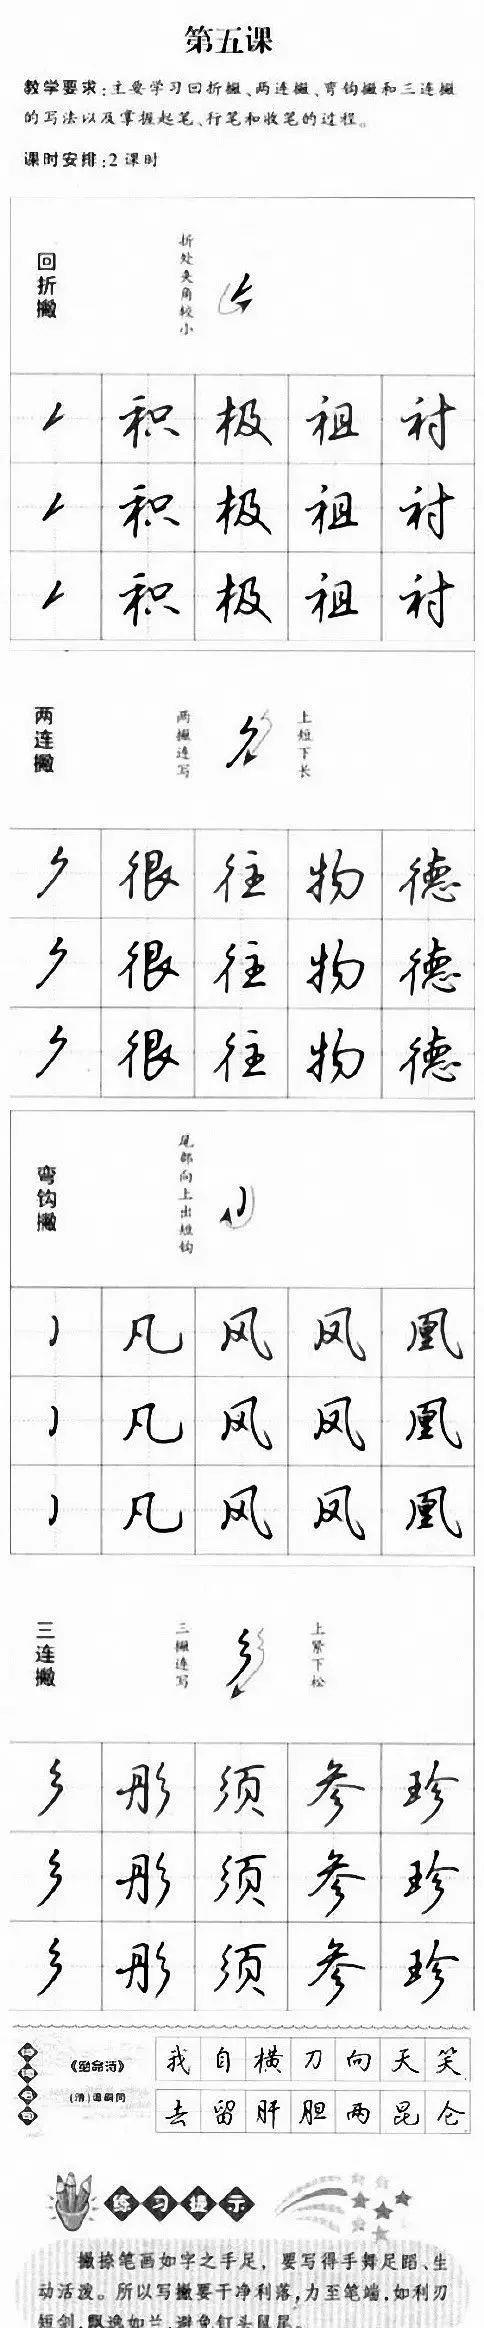 第五课
教学要求:主要学习回折撇、两连撇、弯钩撇和三连撇
的写法以及掌握起笔、行笔和收笔的过程。
课时安排:2课时
回折撇
折处夹角较小
积 极 祖 衬
积 极 祖 衬
积 极 祖 衬
两连撇
两撇连写
上短下长
很 往 物 德
很 往 物 德
很 往 物 德
弯钩撇
尾部向上出短钩
凡 风 凤 凰
凡 风 凤 凰
凡 风 凤 凰
三连撇
三撇连写
上紧下松
彤 须 参 珍
彤 须 参 珍
彤 须 参 珍
《绝命诗》
(清)谭嗣同
我自横刀向天笑
去留肝胆两昆仑
练习提示
撇捺笔画如字之手足，要写得手舞足蹈、生
动活泼。所以写撇要干净利落,力至笔端,如利刃
短剑,飘逸如兰,避免钉头鼠尾。